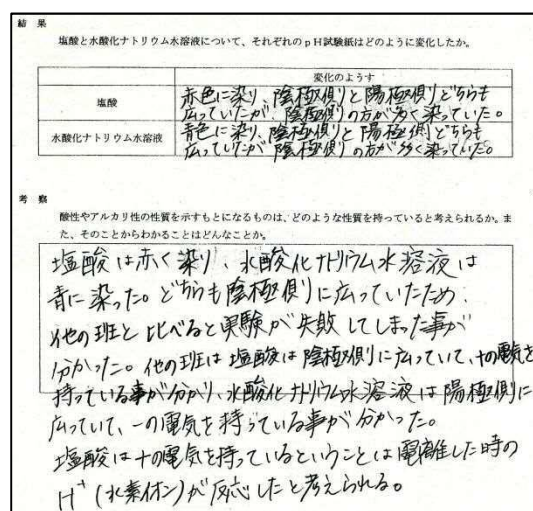 結 果
塩酸と水酸化ナトリウム水溶液について、それぞれのpH試験紙はどのように変化したか。
変化のようす
塩酸
赤色に染り、陰極側と陽極側どちらも
広っていたが、陰極側の方が多く染っていた。
水酸化ナトリウム水溶液
青色に染り、陰極側と陽極側どちらも
広っていたが陰極側の方が多く染っていた。
考 察
酸性やアルカリ性の性質を示すもとになるものは、どのような性質を持っていると考えられるか。ま
た、そのことからわかることはどんなことか。
塩酸は赤く染り、水酸化ナトリウム水溶液は
青に染った。どちらも陰極側に広っていたため、
他の班と比べると実験が失敗してしまった事が
分かった。他の班は塩酸は陰極側に広っていて、+の電気を
持っている事が分かり、水酸化ナトリウム水溶液は陽極側に
広っていて、-の電気を持っている事が分かった。
塩酸は+の電気を持っているということは電離した時の
H⁺(水素イオン)が反応したと考えられる。